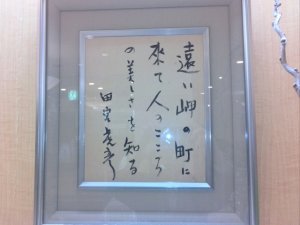 遠い岬の町に
來て人のこころ
の美しさを知る
田宮虎彦